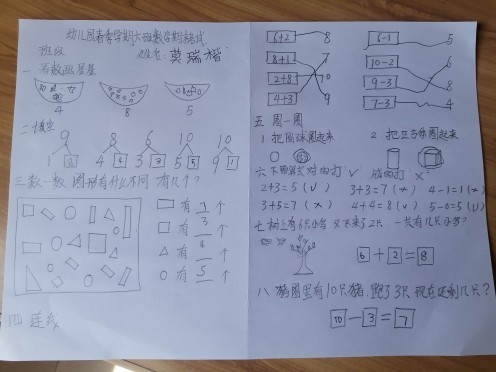 幼儿园春季学期大班数学期末考试
班级 姓名：莫瑞楷
一 看数画星星
4 8 5
二 填空
9 8 6 10 10
1 4 3 3 5 5 9 1
三 数一数 图形有什么不同 有几个？
有 3 个
有 4 个
有 5 个
四 连线
6+2 8
8+1 7
2+8 10
4+3 9
6-1 5
10-2 6
9-3 8
7-3 4
五 圈一圈
1 把圆球圈起来 2 把正方体圈起来
六 下面算式对的打 √ 错的打 ×
2+3=5(√) 3+3=7(×) 4-1=1(×)
3+5=7(×) 4+4=8(√) 5-0=5(√)
七 树上有6只小鸟 又飞来了2只 一共有几只小鸟？
6+2=8
八 猪圈里有10只猪，跑了3只 现在还剩几只？
10-3=7